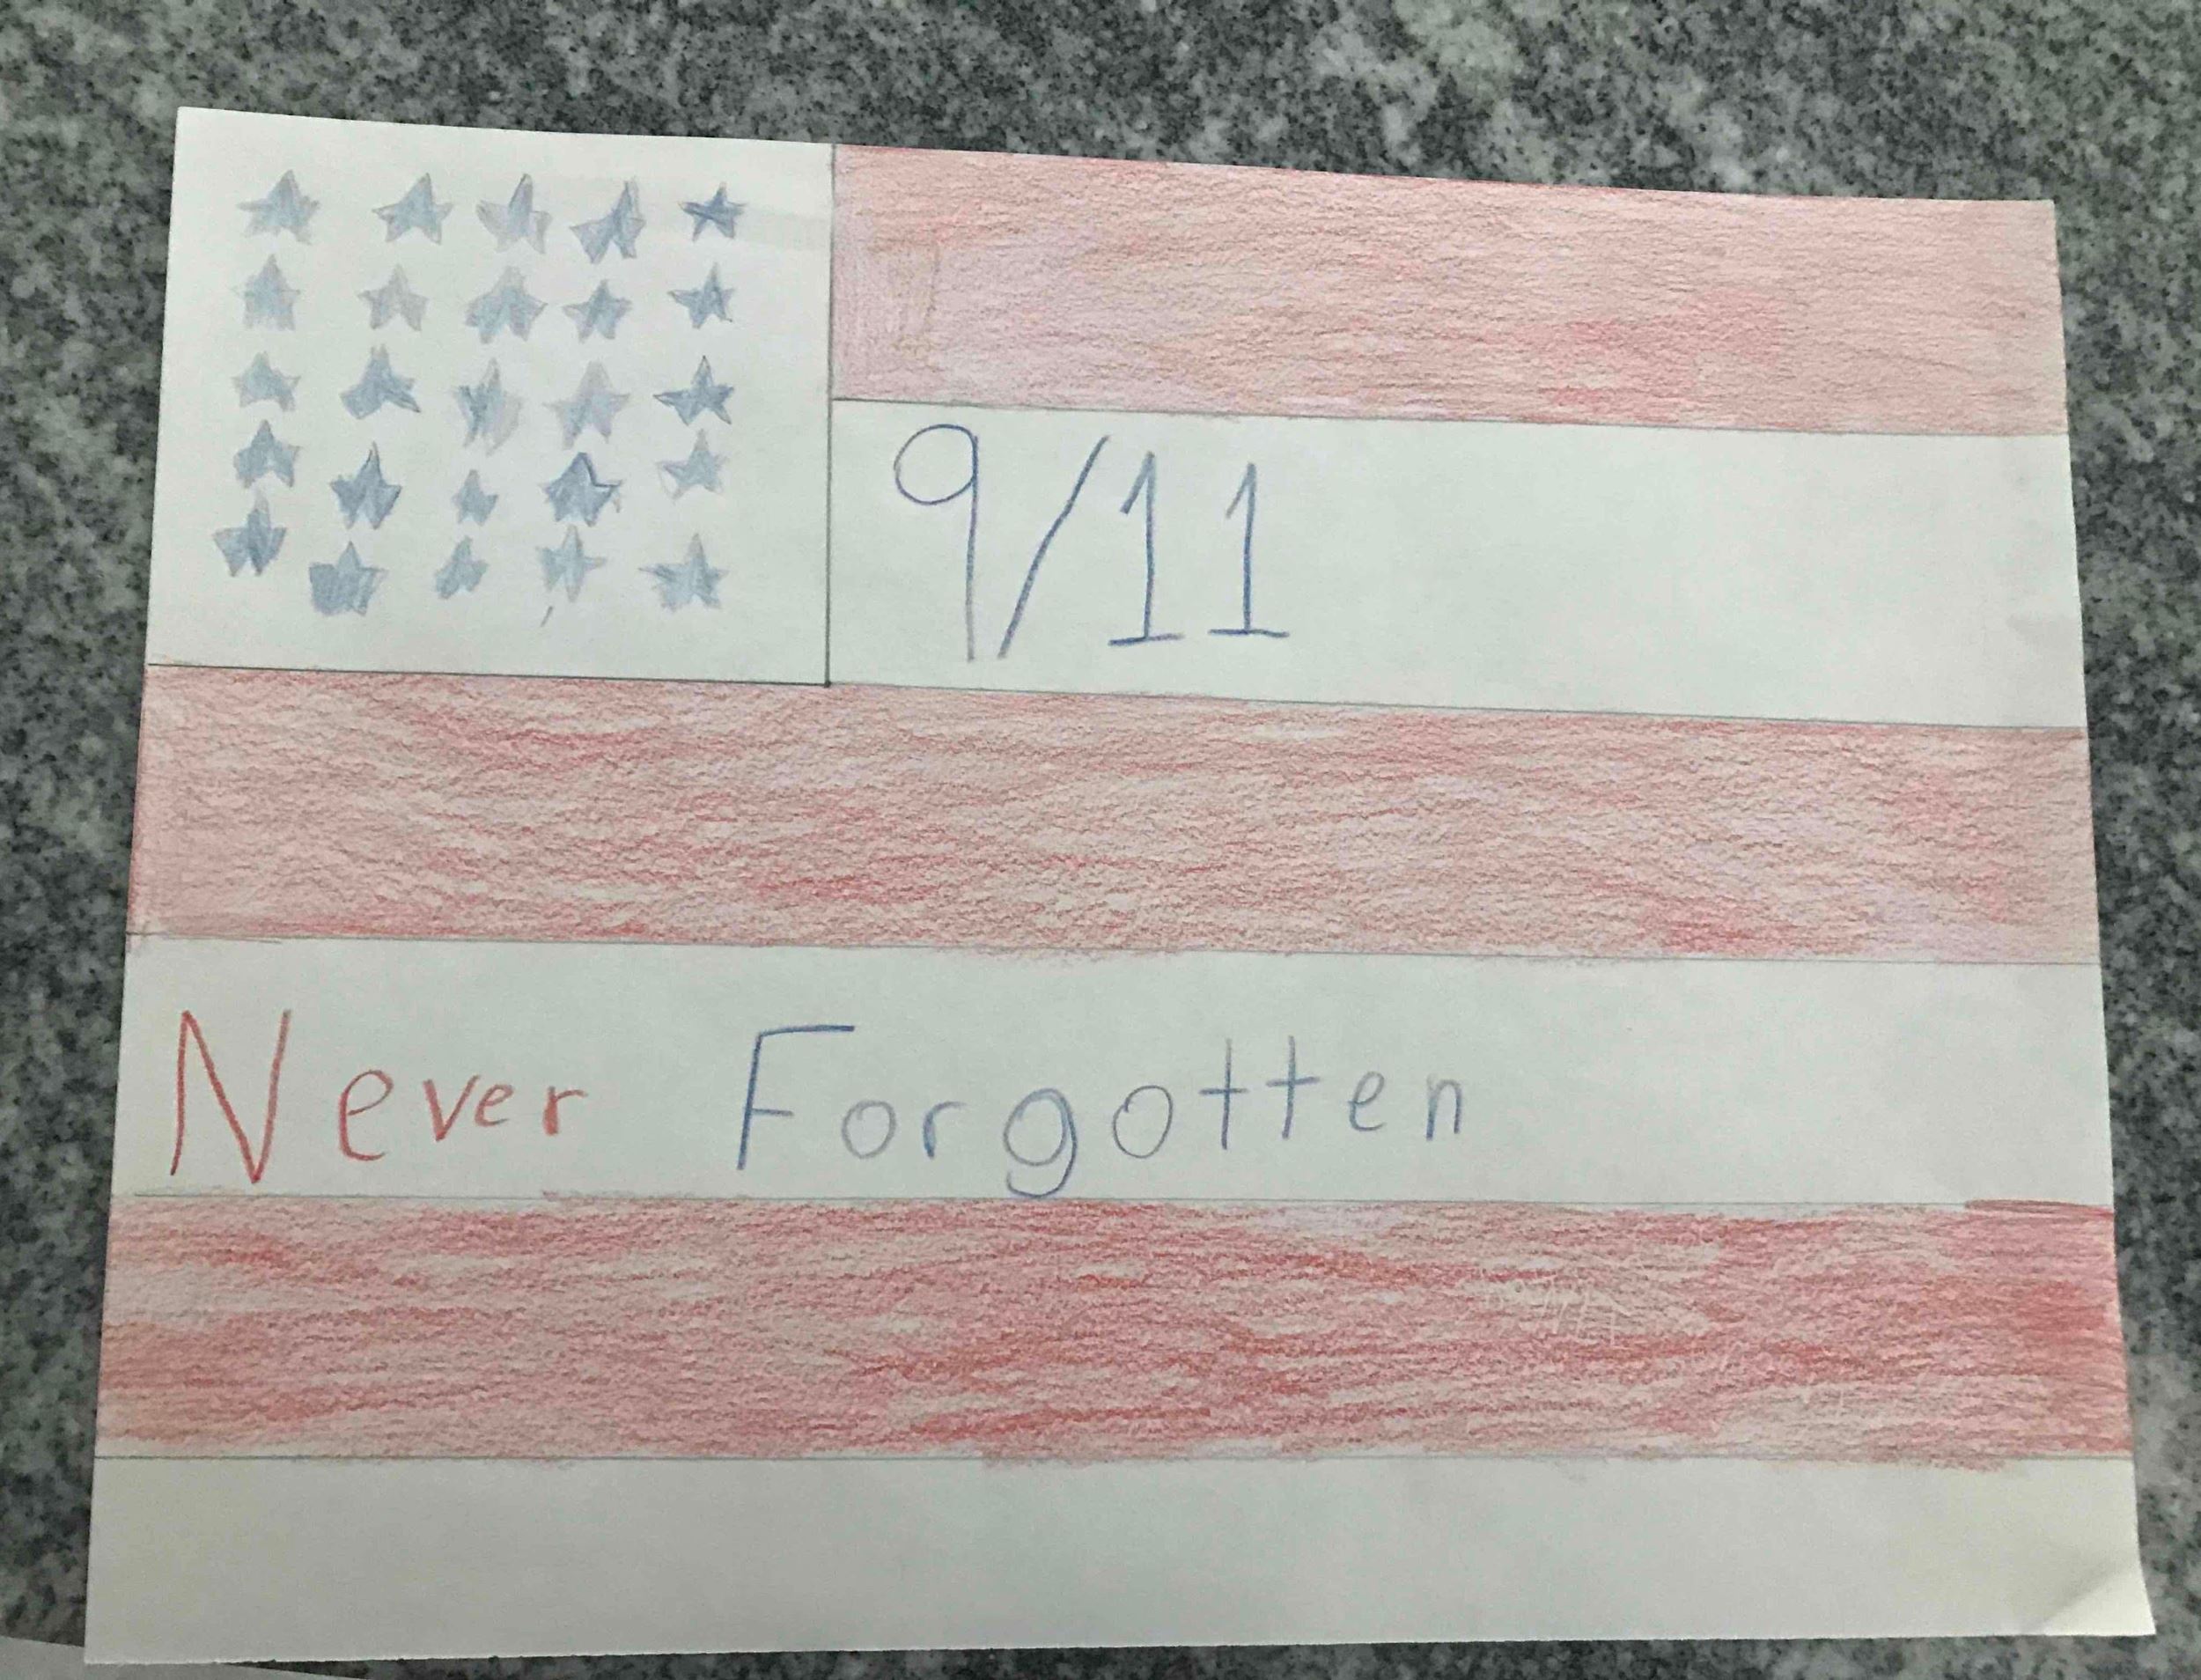 9/11
Never Forgotten